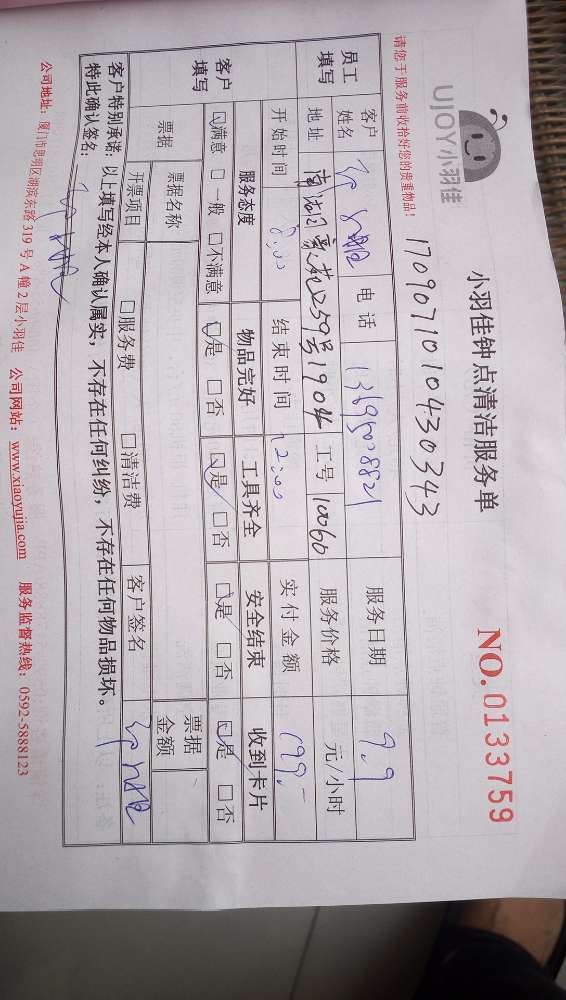 UJOY小羽佳
小羽佳钟点清洁服务单
NO.0133759
请您于服务前收拾好您的贵重物品!
170907101043034 3
员工填写
客户姓名 电话 服务日期 9.9
地址 59号1904 工号 10060 服务价格 元/小时
开始时间 8:00 结束时间 12:00 实付金额 199.-
客户填写
服务态度 物品完好 工具齐全 安全结束 收到卡片
☑满意 □一般 □不满意 ☑是 □否 ☑是 □否 ☑是 □否 ☑是 □否
票据 票据名称 票据金额
开票项目 □服务费 □清洁费 客户签名
客户特别承诺:以上填写经本人确认属实,不存在任何纠纷,不存在任何物品损坏。
特此确认签名:
公司地址:厦门市思明区湖滨东路319号A幢2层小羽佳 公司网站:www.xiaoyujia.com 服务监督热线:0592-5888123